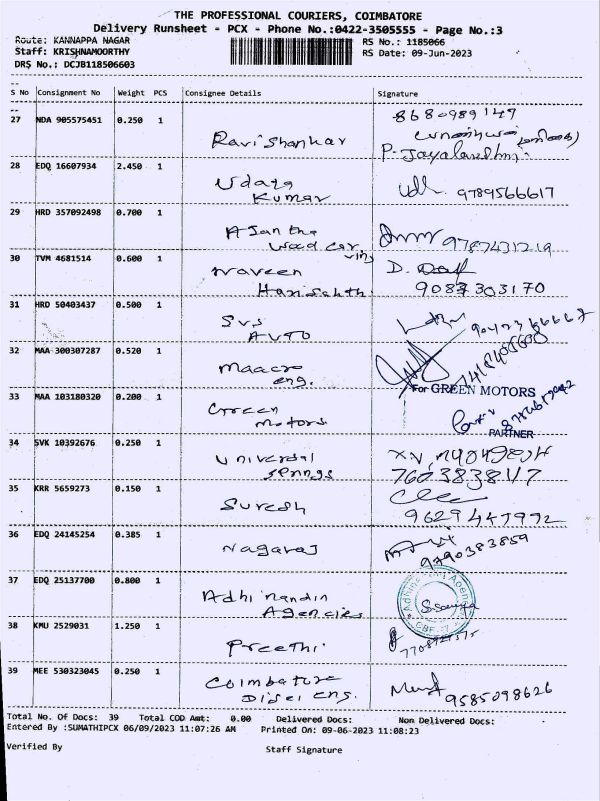 THE PROFESSIONAL COURIERS, COIMBATORE
Delivery Runsheet - PCX - Phone No.:0422-3505555 - Page No.:3
Route: KANNAPPA NAGAR
RS No.: 1185066
Staff: KRISHNAMOORTHY
RS Date: 09-Jun-2023
DRS No.: DCJB118506603
S No Consignment No Weight PCS Consignee Details Signature
27 NDA 905575451 0.250 1
8680989149
Ravi Shankar
28 EDQ 16607934 2.450 1
Udaya
Kumar
9789566617
29 HRD 357092498 0.700 1
Ajantha
wood carving
9787431219
30 TVM 4681514 0.600 1
Naveen
D.
9087303170
31 HRD 50403437 0.500 1
SVS
AUTO
32 MAA 300307287 0.520 1
Maacro
eng.
For GREEN MOTORS
33 MAA 103180320 0.200 1
Green
Motors
PARTNER
34 SVK 10392676 0.250 1
Universal
Springs
7603838117
35 KRR 5659273 0.150 1
Suresh
9629447992
36 EDQ 24145254 0.385 1
Nagaraj
9790383859
37 EDQ 25137700 0.800 1
Adhi nandin
Agencies
38 KMU 2529031 1.250 1
Preethi.
39 MEE 530323045 0.250 1
Coimbatore
Disel eng.
9585098626
Total No. Of Docs: 39 Total COD Amt: 0.00 Delivered Docs: Non Delivered Docs:
Entered By :SUMATHIPCX 06/09/2023 11:07:26 AM Printed On: 09-06-2023 11:08:23
Verified By Staff Signature